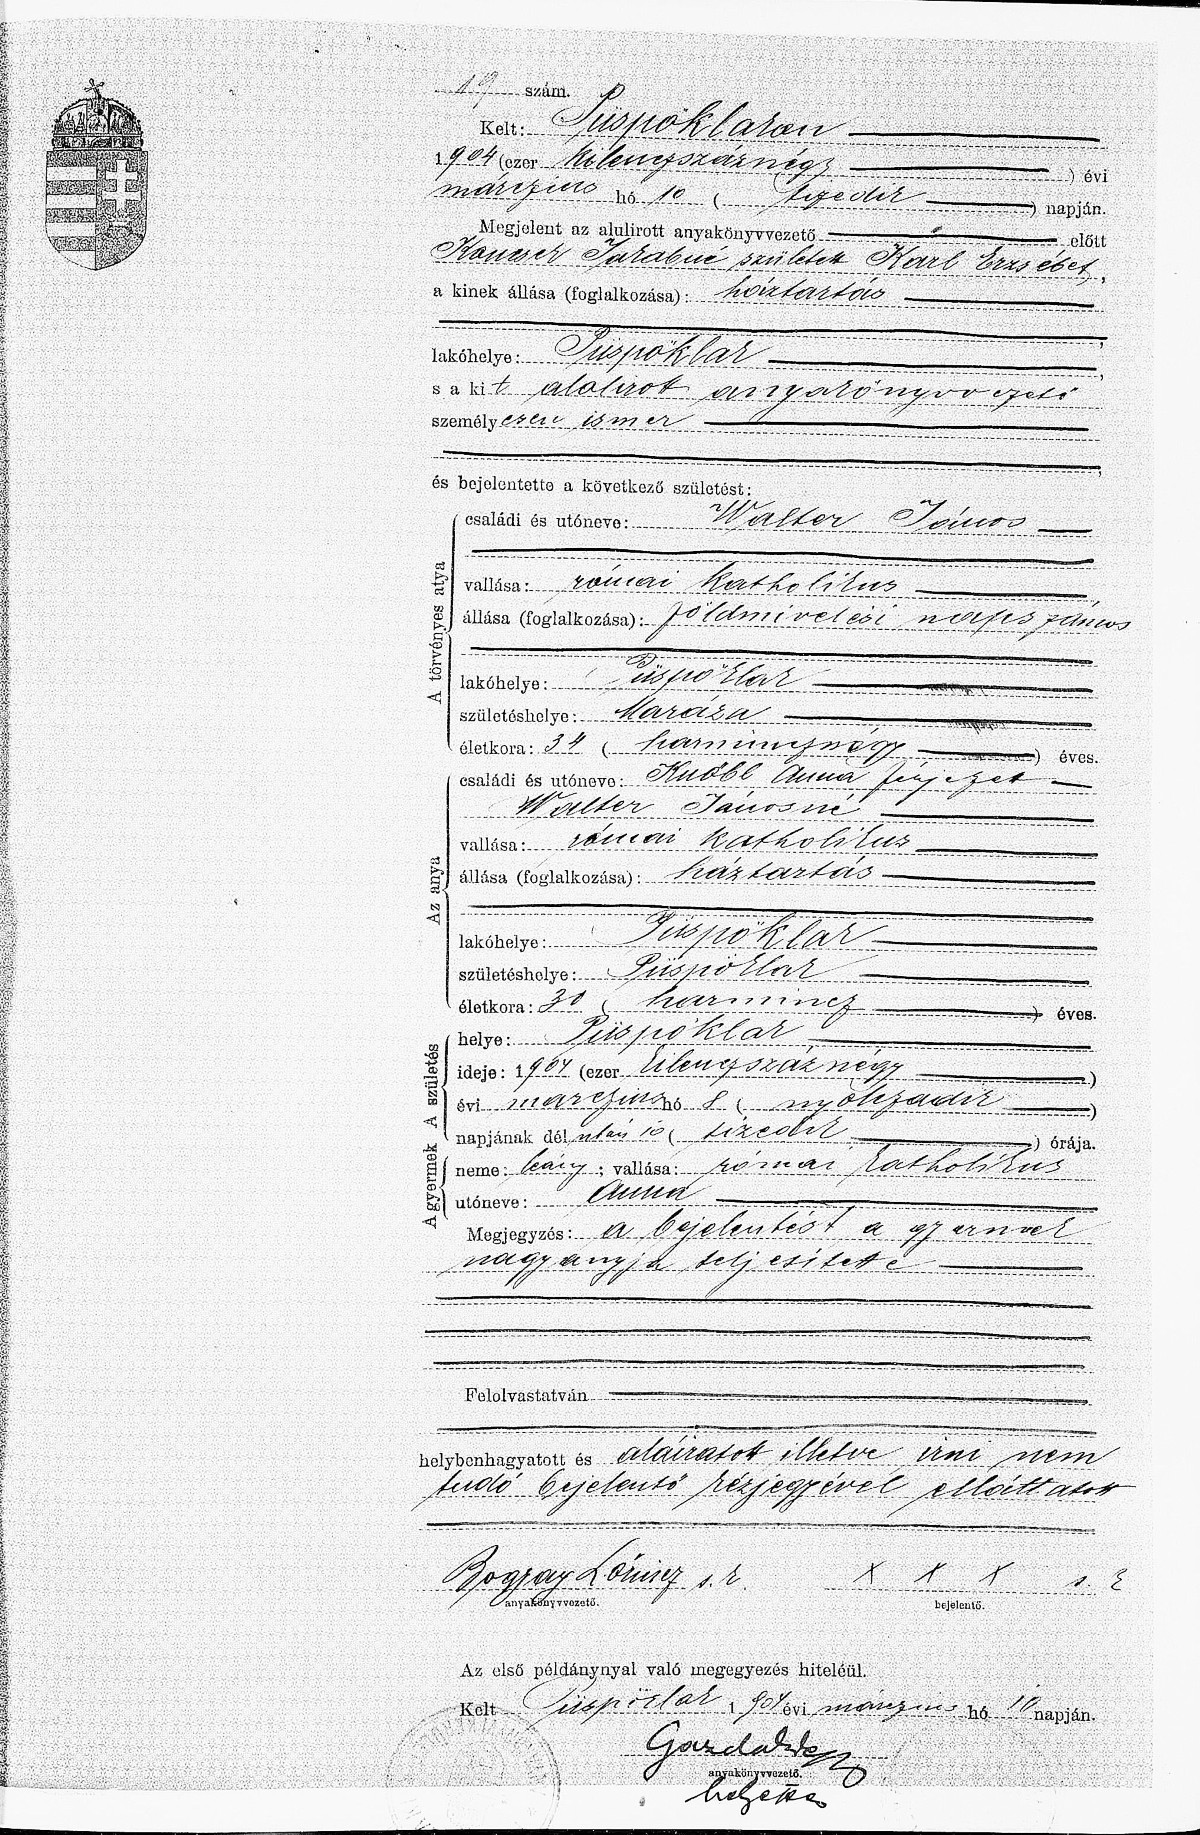 19 szám.
Kelt: Püspöklakon
1904 (ezer kilenczszáznégy ) évi
márczius hó 10 ( tizedik ) napján.
Megjelent az alulirott anyakönyvvezető előtt
született Karl Erzsébet,
a kinek állása (foglalkozása): háztartás
lakóhelye: Püspöklak
s a kit alolirott anyakönyvvezető
személyesen ismer
és bejelentette a következő születést:
A törvényes atya
családi és utóneve: Walter János
vallása: római katholikus
állása (foglalkozása): földmivelési napszámos
lakóhelye: Püspöklak
születéshelye: Maráza
életkora: 34 ( harmincznégy ) éves.
Az anya
családi és utóneve: Knóbl Anna férjezett
Walter Jánosné
vallása: római katholikus
állása (foglalkozása): háztartás
lakóhelye: Püspöklak
születéshelye: Püspöklak
életkora: 30 ( harmincz ) éves.
A születés
helye: Püspöklak
ideje: 1904 (ezer kilenczszáznégy )
évi márczius hó 8 ( nyolczadik )
napjának dél után 10 ( tizedik ) órája.
A gyermek
neme: leány ; vallása: római katholikus
utóneve: Anna
Megjegyzés: a bejelentést a gyermek
nagyanyja teljesitette
Felolvastatván
helybenhagyatott és aláiratott illetve irni nem
tudó bejelentő kézjegyével elláttatott
Bogyay Lőrincz s. k. x x x s. k
anyakönyvvezető. bejelentő.
Az első példánynyal való megegyezés hiteléül.
Kelt Püspöklak 1904 évi márczius hó 10 napján.
anyakönyvvezető.
helyettes